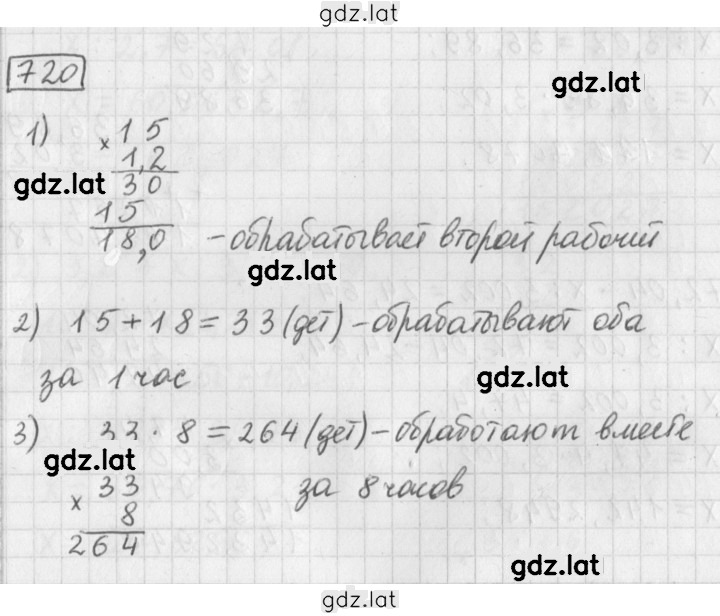 gdz.lat
720
gdz.lat
1) × 15
1,2
gdz.lat 30
15
18,0 - обрабатывает второй рабочий
gdz.lat
2) 15 + 18 = 33 (дет) - обрабатывают оба
за 1 час
gdz.lat
3) 33 · 8 = 264 (дет) - обработают вместе
gdz.lat
× 33 за 8 часов
8
264
gdz.lat
gdz.lat